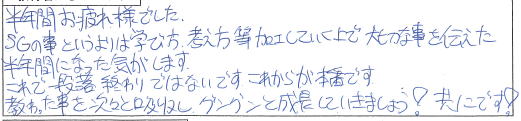 半年間お疲れ様でした.
SGの事というよりは学び方、考え方等加工していく上で大切な事を伝えた
半年間になった気がします
これで一段落終わりではないです これからが本番です
教わった事を次々と吸収し、グングンと成長していきましょう!共にです!